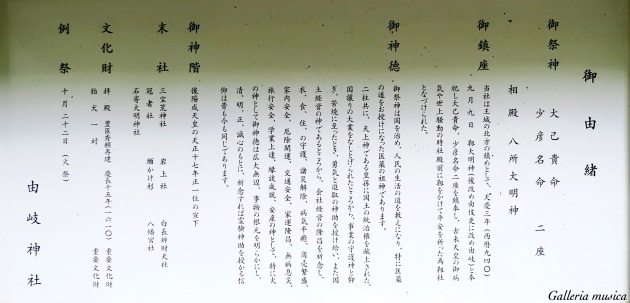 御由緒
御祭神 大己貴命
少彦名命 二座
相殿 八所大明神
御鎮座
当社は王城の北方の鎮めとして、天慶三年(西暦九四〇)
九月九日 靱大明神(後改め由岐史に改め由岐)と奉
祀し大己貴命、少彦名命二座を鎮奉し、古来天皇の御病
気や世上騒動の時社殿前に靱をかけて平安を祈った為靱社
となづけられた。
御神徳
御祭神は国を治め、人民の生活の道を教えになり、特に医薬
の道をお授けになった医薬の祖神であります。
二社共に、天上神である皇孫に国土の統治権を献上された、
国譲りの大業をなしとげられたところから、事業の守護神と仰
ぎ、苦境に至ったとき、勇気と進取の神助を授け給い、また国
土経営の神であるところから、会社経営の隆昌を祈念し、
衣、食、住、の守護、諸災解除、病気平癒、商売繁盛、
家内安全、厄除開運、交通安全、家運隆昌、無病息災、
旅行安全、学業上達、縁談成就、安産の神として、特に火
の神として御神徳は広大無辺、事物の根元を明らかにし、
清、明、正、誠心のもとに、祈念すれば霊験神助を授かる信
仰は昔も今も同じであります。
御神階
後陽成天皇の天正十七年正一位の宣下
末社
三宝荒神社 岩上社 白長弁財天社
冠者社 願かけ杉 八幡宮社
石寄大明神社
文化財
拝殿 豊臣秀頼再建 慶長十五年(一六一〇) 重要文化財
狛犬一対 重要文化財
例祭 十月二十二日(火祭)
由岐神社
Galleria musica